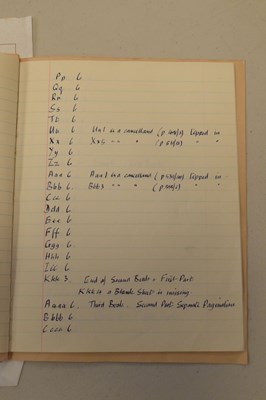 Pp 6
Qq 6
Rr 6
Ss 6
Tt 6
Uu 6 Uu1 is a cancelland tipped in
Xx 6 Xx5 " " " "
Yy 6
Zz 6
Aaa 6 Aaa1 is a cancelland tipped in
Bbb 6 Bbb3 " " " "
Ccc 6
Ddd 6
Eee 6
Fff 6
Ggg 6
Hhh 6
Iii 6
Kkk 3. End of Second Book & First Part.
Kkk is a Blank Sheet is missing.
Aaaa 6. Third Book. Second Part Separate Paginations
Bbbb 6
Cccc 6